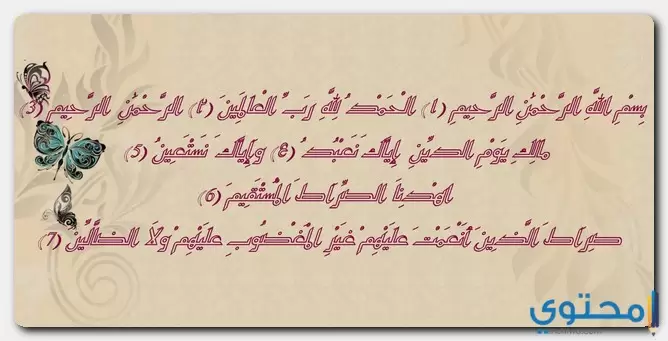 بِسْمِ اللَّهِ الرَّحْمَٰنِ الرَّحِيمِ (1) الْحَمْدُ لِلَّهِ رَبِّ الْعَالَمِينَ (2) الرَّحْمَٰنِ الرَّحِيمِ (3)
مَالِكِ يَوْمِ الدِّينِ إِيَّاكَ نَعْبُدُ (4) وَإِيَّاكَ نَسْتَعِينُ (5)
اهْدِنَا الصِّرَاطَ الْمُسْتَقِيمَ (6)
صِرَاطَ الَّذِينَ أَنْعَمْتَ عَلَيْهِمْ غَيْرِ الْمَغْضُوبِ عَلَيْهِمْ وَلَا الضَّالِّينَ (7)
محتوى